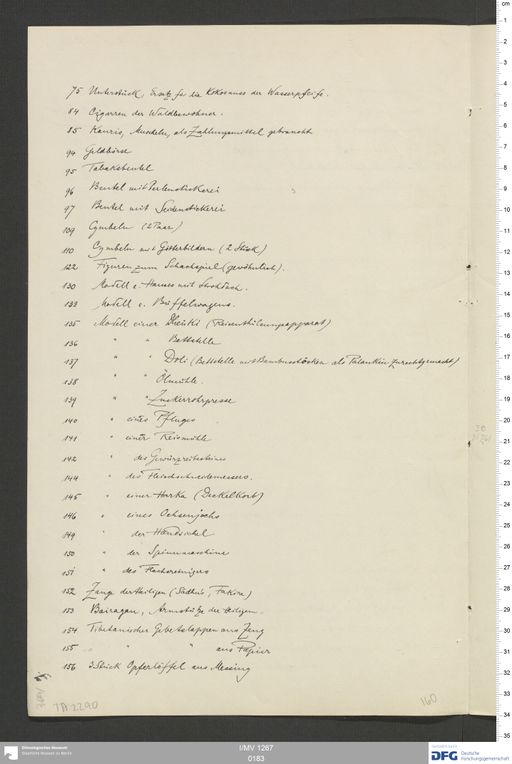 75 Unterstück, Ersatz für die Kokosnuss der Wasserpfeife.
84 Cigarren der Waldbewohner.
85 Kauris, Muscheln, als Zahlungsmittel gebraucht
94 Geldbörse
95 Tabaksbeutel
96 Beutel mit Perlenstickerei
97 Beutel mit Seidenstickerei
109 Cymbeln (2 Paar)
110 Cymbeln mit Götterbildern (2 Stück)
122 Figuren zum Schachspiel (gewöhnlich).
130 Modell e. Hauses mit Strohdach.
133 Modell e. Büffelwagens.
135 Modell einer Dheńki (Reisenthülsungsapparat)
136 " " Bettstelle
137 " " Doli (Bettstelle mit Bambusstöcken als Palankin zurechtgemacht)
138 " " Ölmühle.
139 " " Zuckerrohrpresse
140 " eines Pfluges
141 " einer Reismühle
142 " des Gewürzreibsteines
144 " des Fleischschneidemessers.
145 " einer Harka (Deckelkorb)
146 " eines Ochsenjochs
149 " der Handsichel
150 " der Spinnmaschine
151 " des Flachsreinigers
152 Zange der Heiligen (Sadhu's, Fakire)
153 Bairagan, Armstütze der Heiligen.
154 Tibetanischer Gebetslappen aus Zeug
155 " " aus Papier
156 3 Stück Opferlöffel aus Messing
TA 2290
160
Ethnologisches Museum
Staatliche Museen zu Berlin
I/MV 1267
0183
DFG Deutsche
Forschungsgemeinschaft